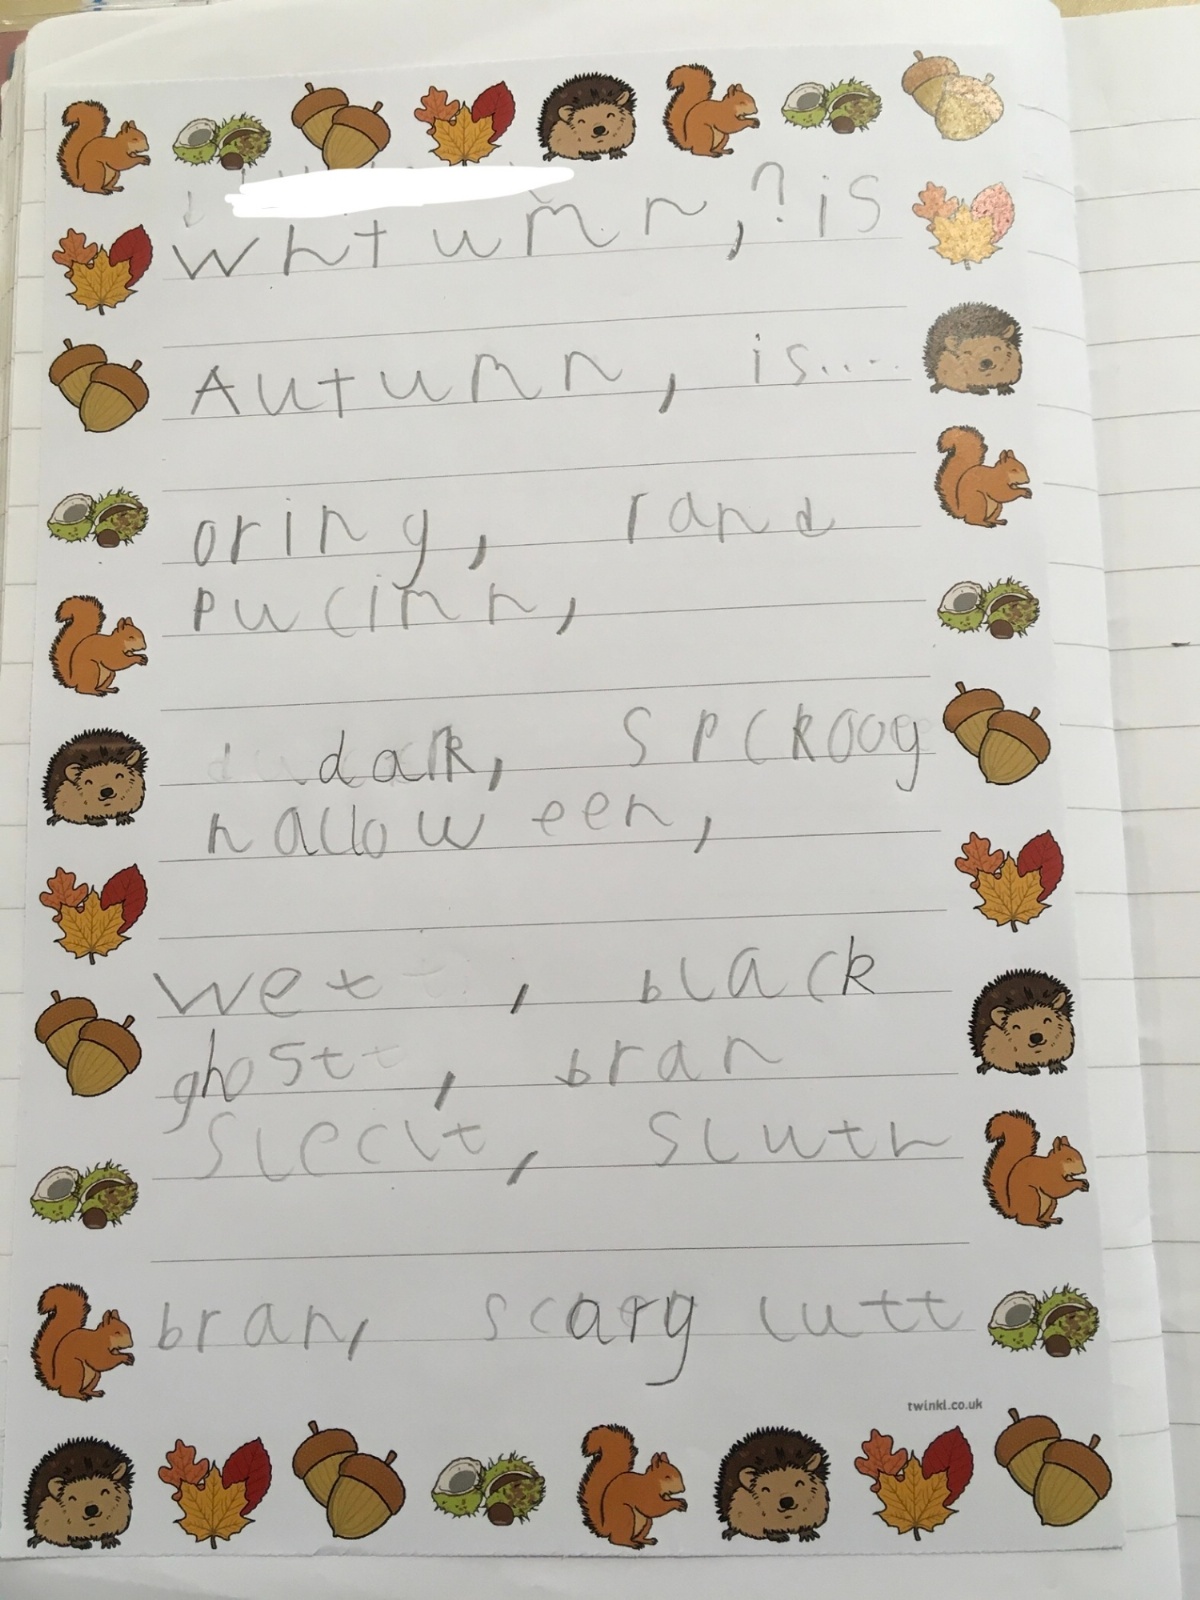 whtumn,? is
Autumn, is.....
oring, rand
pucimn,
dark, spckoog
halloween,
wet, black
ghost, bran
sleclt, sluth
bran, scarg lutt
twinkl.co.uk